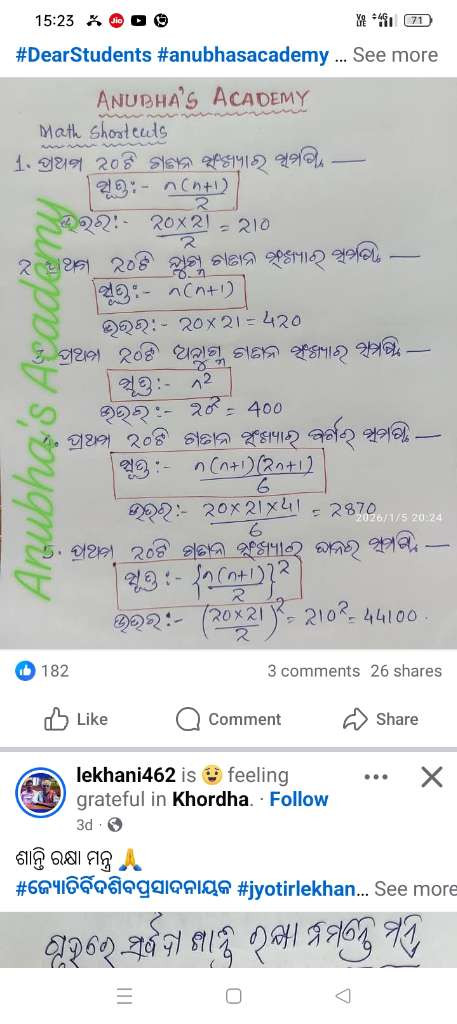 15:23
Vo LTE 4G 71
#DearStudents #anubhasacademy ... See more
ANUBHA'S ACADEMY
Math Shortcuts
1. ପ୍ରଥମ ୨୦ଟି ଗଣନ ସଂଖ୍ୟାର ସମଷ୍ଟି —
ସୂତ୍ର:- n(n+1)/2
ଉତ୍ତର:- 20×21/2 = 210
2. ପ୍ରଥମ ୨୦ଟି ଯୁଗ୍ମ ଗଣନ ସଂଖ୍ୟାର ସମଷ୍ଟି —
ସୂତ୍ର:- n(n+1)
ଉତ୍ତର:- 20×21=420
3. ପ୍ରଥମ ୨୦ଟି ଅଯୁଗ୍ମ ଗଣନ ସଂଖ୍ୟାର ସମଷ୍ଟି —
ସୂତ୍ର:- n²
ଉତ୍ତର:- 20² = 400
4. ପ୍ରଥମ ୨୦ଟି ଗଣନ ସଂଖ୍ୟାର ବର୍ଗର ସମଷ୍ଟି —
ସୂତ୍ର:- n(n+1)(2n+1)/6
ଉତ୍ତର:- 20×21×41/6 = 2870
2026/1/5 20:24
5. ପ୍ରଥମ ୨୦ଟି ଗଣନ ସଂଖ୍ୟାର ଘନର ସମଷ୍ଟି —
ସୂତ୍ର:- {n(n+1)/2}²
ଉତ୍ତର:- (20×21/2)² = 210² = 44100.
Anubha's Academy
182 3 comments 26 shares
Like Comment Share
lekhani462 is 😉 feeling
grateful in Khordha. · Follow
3d
ଶାନ୍ତି ରକ୍ଷା ମନ୍ତ୍ର 🙏
#ଜ୍ୟୋତିର୍ବିଦଶିବପ୍ରସାଦନାୟକ #jyotirlekhan... See more
ଗୃହରେ ସର୍ବଦା ଶାନ୍ତି ରକ୍ଷା ନିମନ୍ତେ ମନ୍ତ୍ର